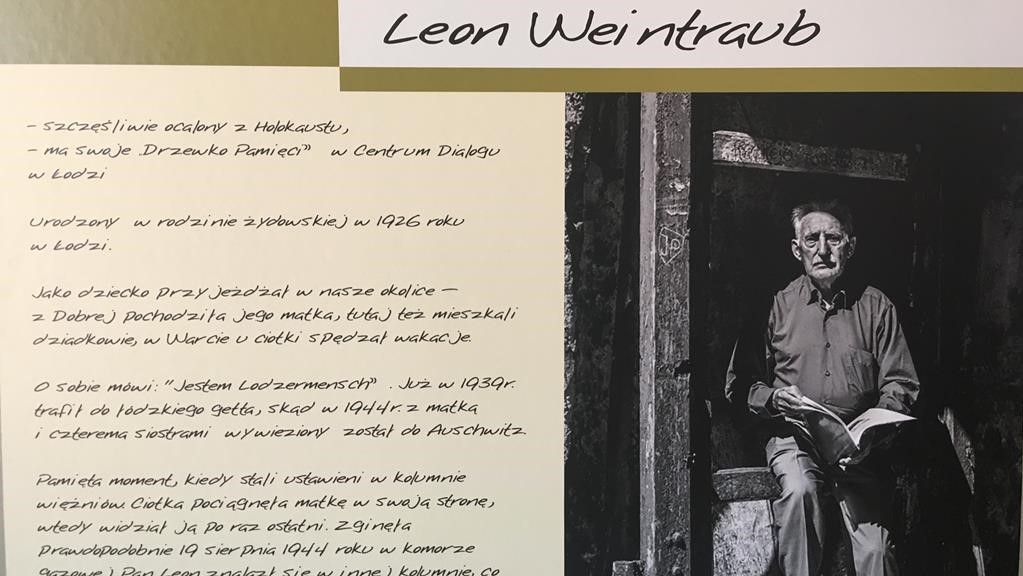 Leon Weintraub
- szczęśliwie ocalony z Holokaustu,
- ma swoje „Drzewko Pamięci" w Centrum Dialogu
w Łodzi
Urodzony w rodzinie żydowskiej w 1926 roku
w Łodzi.
Jako dziecko przyjeżdżał w nasze okolice –
z Dobrej pochodziła jego matka, tutaj też mieszkali
dziadkowie, w Warcie u ciotki spędzał wakacje.
O sobie mówi: "Jestem Lodzermensch" . Już w 1939r.
trafił do łódzkiego getta, skąd w 1944r. z matką
i czterema siostrami wywieziony został do Auschwitz.
Pamięta moment, kiedy stali ustawieni w kolumnie
więźniów. Ciotka pociągnęła matkę w swoją stronę,
wtedy widział ją po raz ostatni. Zginęła
prawdopodobnie 19 sierpnia 1944 roku w komorze
gazowej. Pan Leon znalazł się w innej kolumnie, co